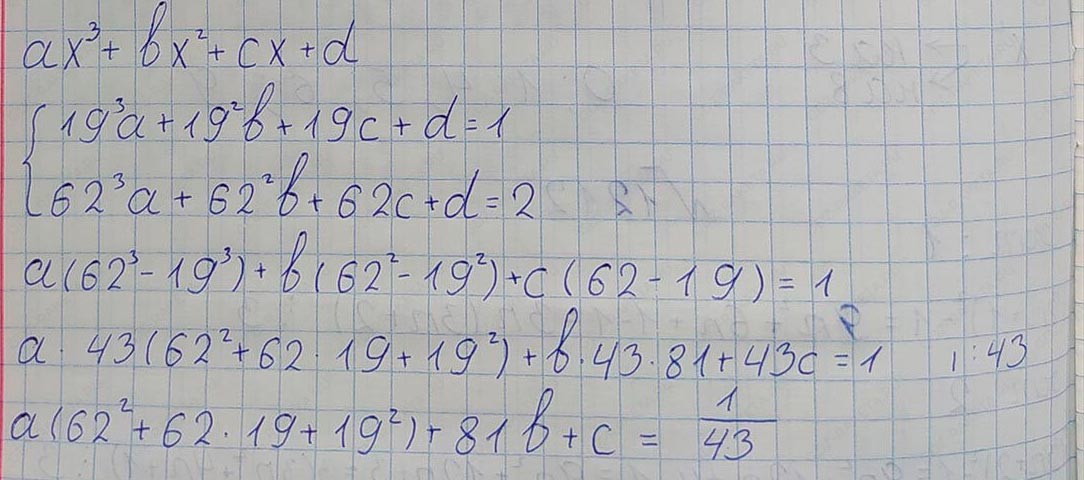 ax³ + bx² + cx + d
{ 19³a + 19²b + 19c + d = 1
62³a + 62²b + 62c + d = 2
a(62³ - 19³) + b(62² - 19²) + c(62 - 19) = 1
a · 43(62² + 62 · 19 + 19²) + b · 43 · 81 + 43c = 1 | : 43
a(62² + 62 · 19 + 19²) + 81b + c = 1/43